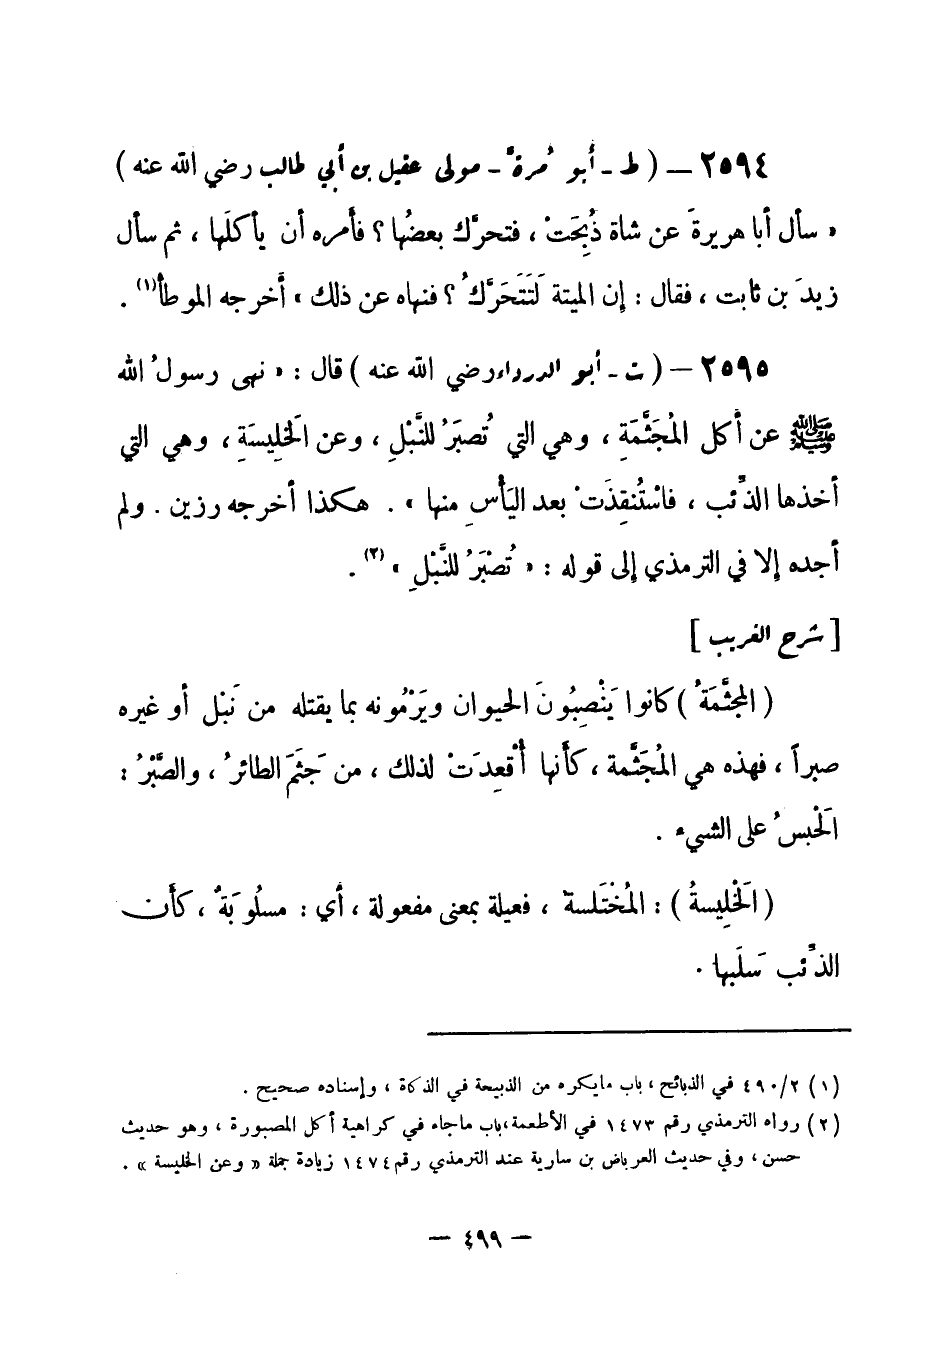 ٢٥٩٤ – ( ط - أبو مُرةَ - مولى عقيل بن أبي طالب رضي الله عنه )
« سأل أبا هريرةَ عن شاة ذُبِحَتْ ، فتحرَّك بعضُها ؟ فأمره أن يأكلَها ، ثم سأل
زيدَ بن ثابت ، فقال : إن الميتة لَتَتَحَرَّكُ ؟ فنهاه عن ذلك » أخرجه الموطأ(١) .
٢٥٩٥ – ( ت - أبو الدرداء رضي الله عنه ) قال : « نهى رسولُ الله
ﷺ عن أكل المُجَثَّمَةِ ، وهي التي تُصبَرُ للنَّبْلِ ، وعن الخَلِيسَةِ ، وهي التي
أخذها الذِّئب ، فاسْتُنقِذَتْ بعد اليَأْسِ منها » . هكذا أخرجه رزين . ولم
أجده إلا في الترمذي إلى قوله : « تُصْبَرُ للنَّبْلِ » (٢) .
[ شرح الغريب ]
( المجثَّمَةُ ) كانوا يَنْصِبُونَ الحيوان ويَرْمُونه بما يقتله من نَبْل أو غيره
صبراً ، فهذه هي المُجَثَّمة ، كأنها أُقْعِدَتْ لذلك ، من جَثَمَ الطائرُ ، والصَّبْرُ :
الحَبْسُ على الشيء .
( الخَلِيسةُ ) : المُخْتَلسة ، فعيلة بمعنى مفعولة ، أي : مسلُوبَةٌ ، كأن
الذِّئب سَلَبها .
(١) ٤٩٠/٢ في الذبائح ، باب مايكره من الذبيحة في الذكاة ، وإسناده صحيح .
(٢) رواه الترمذي رقم ١٤٧٣ في الأطعمة ، باب ماجاء في كراهية أكل المصبورة ، وهو حديث
حسن ، وفي حديث العرباض بن سارية عند الترمذي رقم ١٤٧٤ زيادة جملة « وعن الخليسة » .
– ٤٩٩ –